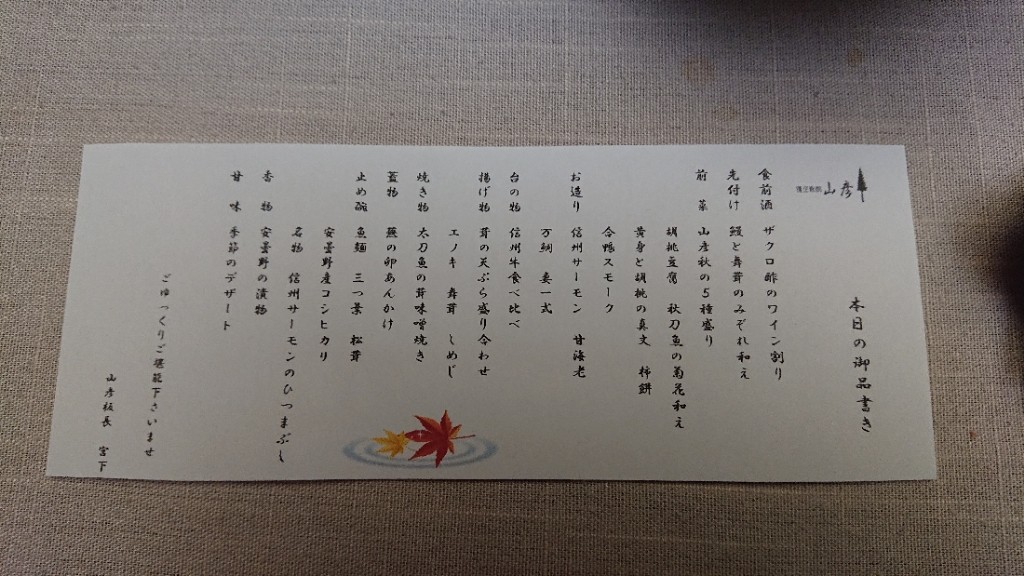 山彦
本日の御品書き
食前酒 ザクロ酢のワイン割り
先付け 鰻と舞茸のみぞれ和え
前菜 山彦秋の5種盛り
胡桃豆腐 秋刀魚の菊花和え
黄身と胡桃の真丈 柿餅
合鴨スモーク
お造り 信州サーモン 甘海老
万鯛 妻一式
台の物 信州牛食べ比べ
揚げ物 茸の天ぷら盛り合わせ
エノキ 舞茸 しめじ
焼き物 太刀魚の茸味噌焼き
蓋物 蕪の卵あんかけ
止め碗 魚麺 三つ葉 松茸
安曇野産コシヒカリ
名物 信州サーモンのひつまぶし
香物 安曇野の漬物
甘味 季節のデザート
ごゆっくりご堪能下さいませ
山彦板長 宮下